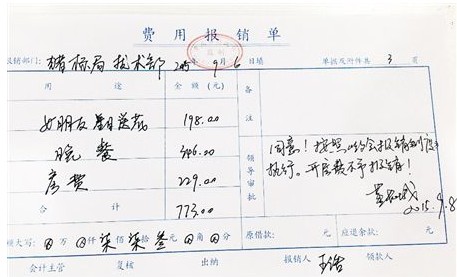 费用报销单
报销部门：猪标局技术部 2015年9月6日填 单据及附件共3页
用途 金额（元） 备注
女朋友生日送花 198.00
晚餐 346.00
房费 229.00
合计 773.00
领导审批
同意！按照公司报销制度
执行。开房费不予报销！
2015.9.8
额大写：⊗万⊗仟柒佰柒拾叁元⊗角⊗分 原借款： 元 应退余款： 元
会计主管 复核 出纳 报销人 王浩 领款人